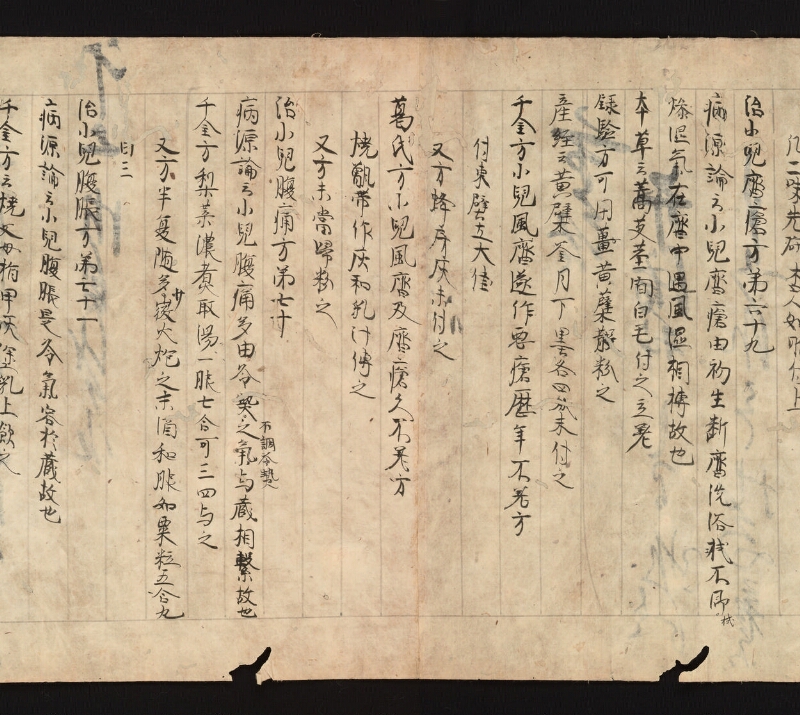 治小兒齊瘡方第六十九
病源論云小兒齊瘡由初生断齊洗浴拭不
燥湿氣在齊中遇風湿相搏故也
本草云 白毛付之立差
録驗方可用薑黄蘗散粉之
産経云黄蘗釜月下墨各四分末付之
千金方小兒風齊遂作悪瘡歷年不差方
付東壁土大佳
又方蜂房灰末付之
葛氏方小兒風齊及齊瘡久不差方
燒甑帶作灰和乳汁傅之
又方末當歸粉之
治小兒腹痛方第七十
病源論云小兒腹痛多由冷熱之氣与蔵相繫故也
不調冷熱
千金方梨葉濃煮取湯一服七合可三四与之
又方半夏随多少火炮之末酒和服如粟粒五合丸
日三
治小兒腹脹方第七十一
病源論云小兒腹脹是冷氣客於蔵故也
千金方云燒父母指甲灰塗乳上飲之